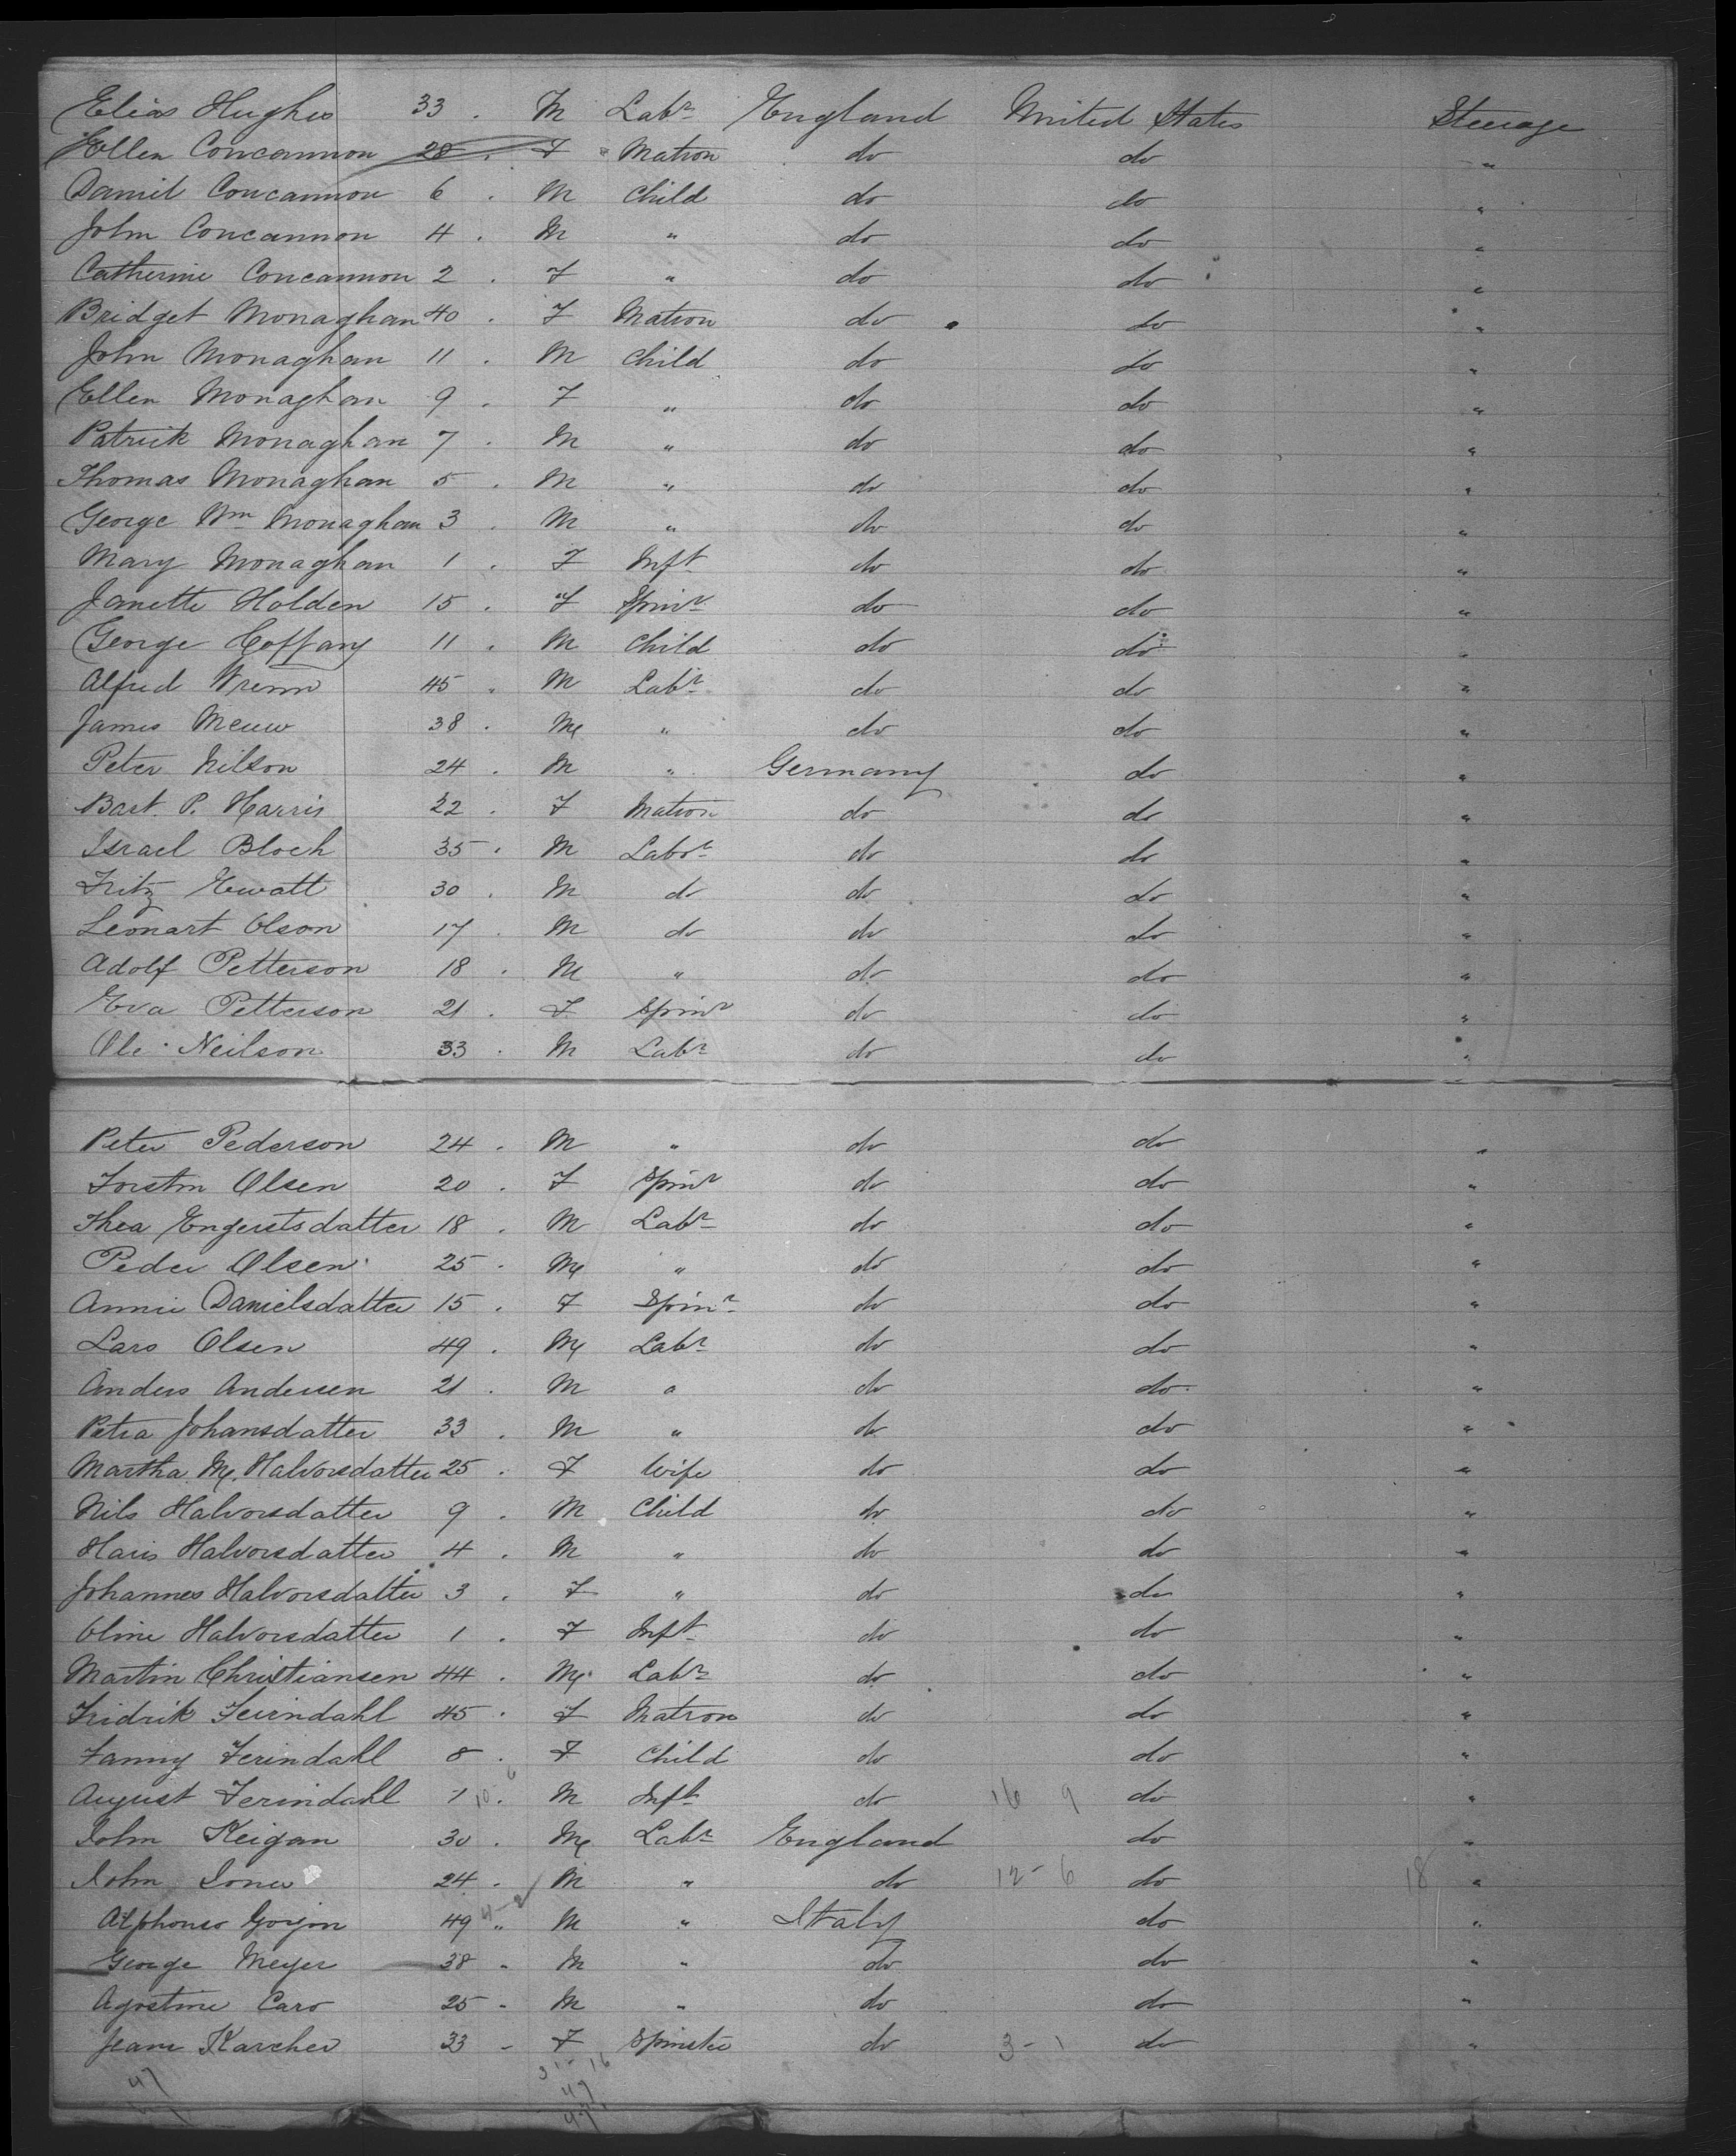 Elias Hughes 33 . M Labr England United States Steerage
Ellen Concannon 28 . F Matron do do "
Daniel Concannon 6 . M Child do do "
John Concannon 4 . M " do do "
Catherine Concannon 2 . F " do do "
Bridget Monaghan 40 . F Matron do do "
John Monaghan 11 . M Child do do "
Ellen Monaghan 9 . F " do do "
Patrick Monaghan 7 . M " do do "
Thomas Monaghan 5 . M " do do "
George Wm Monaghan 3 . M " do do "
Mary Monaghan 1 . F Inft do do "
Janette Holden 15 . F Spinr do do "
George Coffany 11 . M Child do do "
Alfred Wrenn 45 . M Labr do do "
James 38 . M " do do "
Peter Nilson 24 . M " Germany do "
Bart. P. Harris 22 . F Matron do do "
Israel Bloch 35 . M Labor do do "
Fritz Ewatt 30 . M do do do "
Leonart Olson 17 . M do do do "
Adolf Petterson 18 . M " do do "
Eva Petterson 21 . F Spinr do do "
Ole Neilson 33 . M Labr do do "
Peter Pederson 24 . M " do do "
Torstin Olsen 20 . F Spinr do do "
Thea Engerstsdatter 18 . M Labr do do "
Peder Olsen 25 . M " do do "
Annie Danielsdatter 15 . F Spinr do do "
Lars Olsen 49 . M Labr do do "
Anders Andersen 21 . M " do do "
Petra Johansdatter 33 . M " do do "
Martha M. Halvorsdatter 25 . F Wife do do "
Nils Halvorsdatter 9 . M Child do do "
Hans Halvorsdatter 4 . M " do do "
Johannes Halvorsdatter 3 . F " do do "
Oline Halvorsdatter 1 . F Inft do do "
Martin Christiansen 44 . M Labr do do "
Fridrik Ferindahl 45 . F Matron do do "
Fanny Ferindahl 8 . F Child do do "
August Ferindahl 1 10 . 6 M Inft do 16 9 do "
John Keigan 30 . M Labr England do "
John Jones 24 . M " do 12 - 6 do 18 "
Alphonso 49 " 4-2 M " Italy do "
George Meyer 38 " M " do do "
Agostine Caro 25 - M " do do "
Jeane Karcher 33 - F Spinster do 3 - 1 do "
47 31 - 16
47